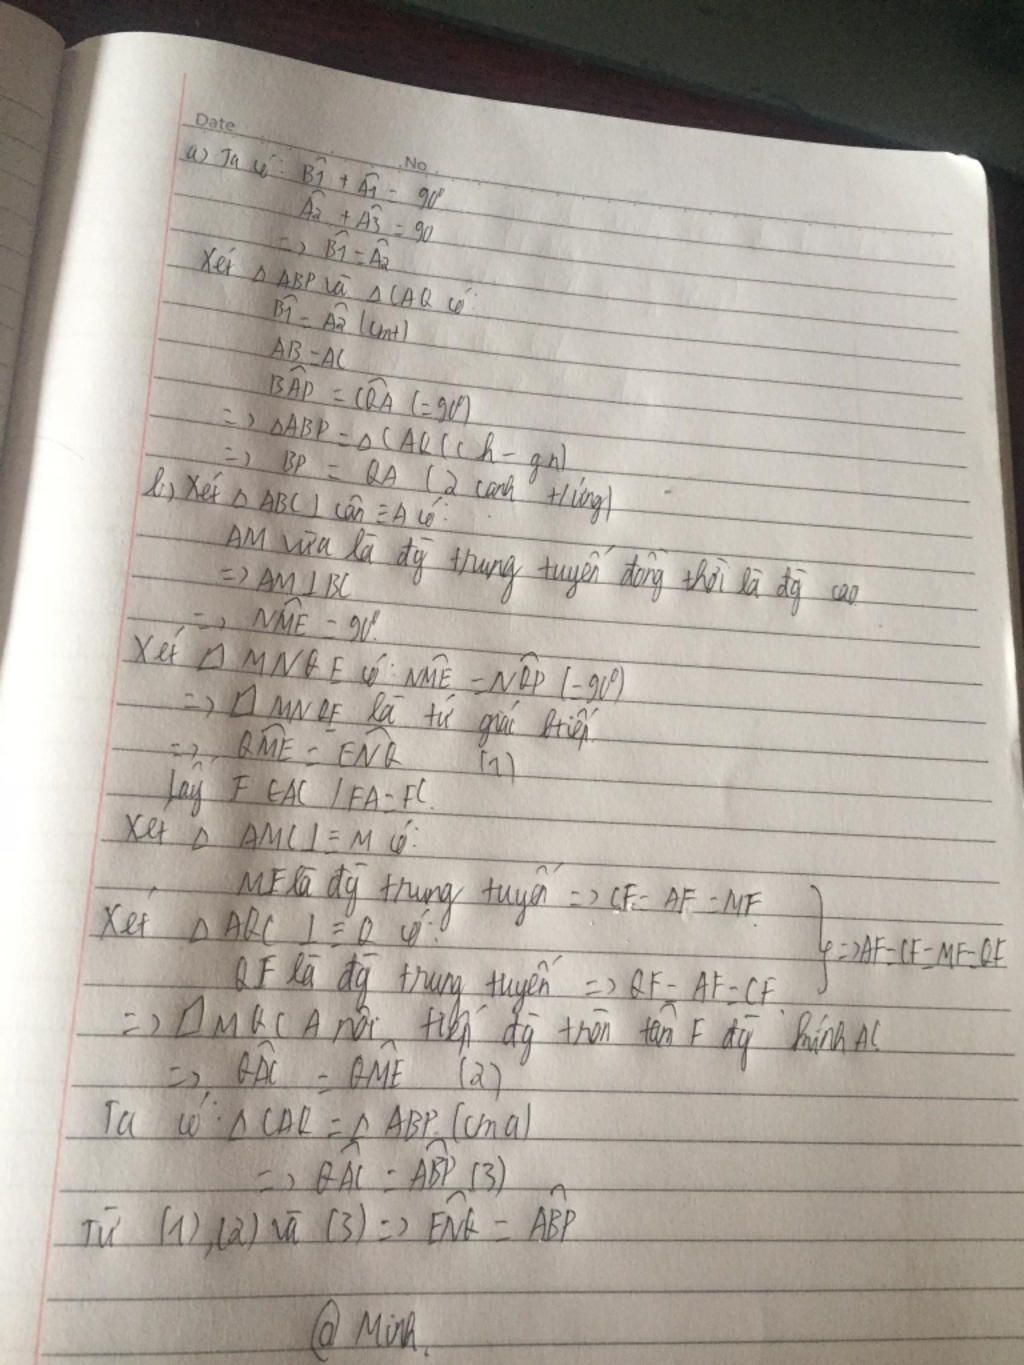 Date
No
a) Ta có: B̂1 + Â1 = 90°
Â2 + Â3 = 90
=> B̂1 = Â2
Xét △ ABP và △ CAQ có:
B̂1 = Â2 (cmt)
AB = AC
BÂP = CQ̂A (= 90°)
=> △ABP = △CAQ (ch - gn)
=> BP = QA (2 cạnh tứng)
b) Xét △ ABC ⊥ cân ≡ A có:
AM vừa là đg trung tuyến đồng thời là đg cao
=> AM ⊥ BC
=> NM̂E = 90°
Xét □ MNQE có: NM̂E = NQ̂P (= 90°)
=> □ MNQE là tứ giác ntiếp
=> QM̂E = EN̂Q (1)
Lấy F ∈ AC / FA = FC
Xét △ AMC ⊥ ≡ M có:
MF là đg trung tuyến => CF = AF = MF
Xét △ AQC ⊥ ≡ Q có: => AF = CF = MF = QF
QF là đg trung tuyến => QF = AF = CF
=> □ MQCA nội tiếp đg tròn tâm F đg kính AC
=> QÂC = QM̂E (2)
Ta có: △ CAQ = △ ABP (cm a)
=> QÂC = AB̂P (3)
Từ (1), (2) và (3) => EN̂Q = AB̂P
@ Minh.